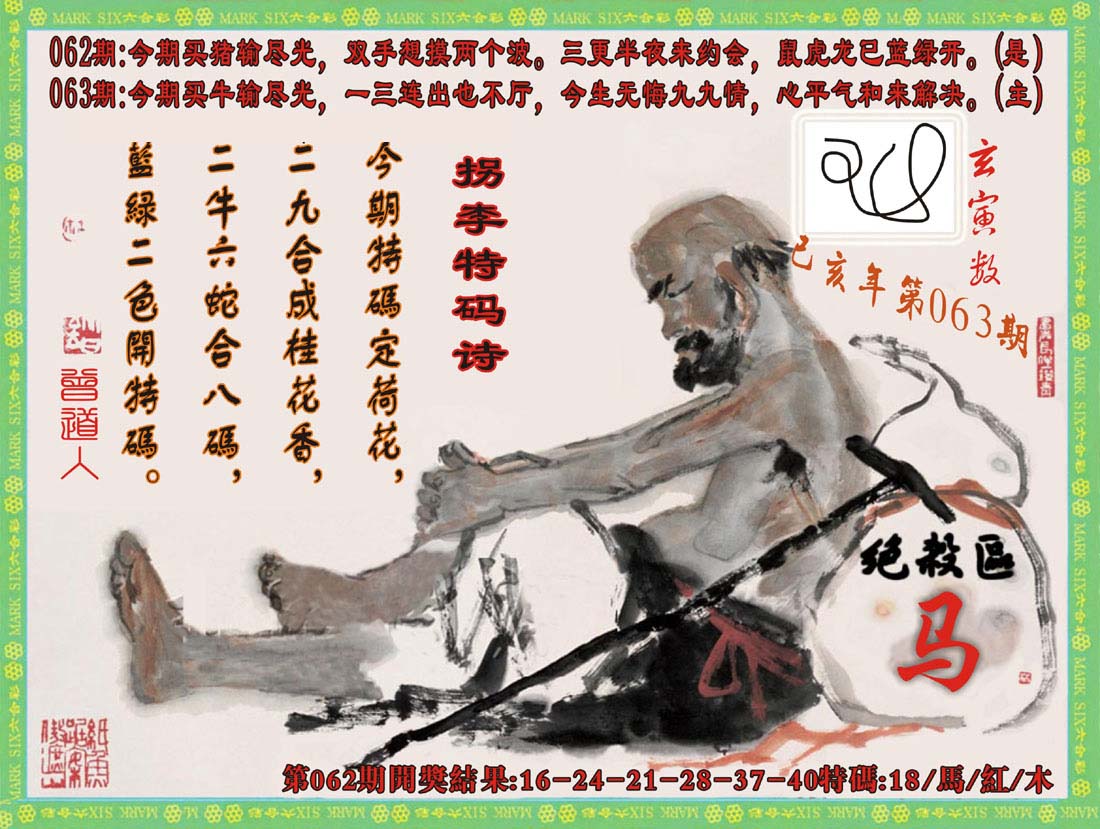 MARK SIX六合彩 MARK SIX六合彩 MARK SIX六合彩 MARK SIX六合彩 MARK SIX六合彩 MARK SIX六合彩
062期:今期买猪输尽光，双手想摸两个波。三更半夜来约会，鼠虎龙已蓝绿开。(是)
063期:今期买牛输尽光，一三连出也不厅，今生无悔九九情，心平气和来解决。(主)
玄寅数
己亥年第063期
拐李特码诗
今期特碼定荷花，
二九合成桂花香，
二牛六蛇合八碼，
藍緑二色開特碼。
曾道人
绝殺區
马
第062期開獎結果:16-24-21-28-37-40特碼:18/馬/紅/木